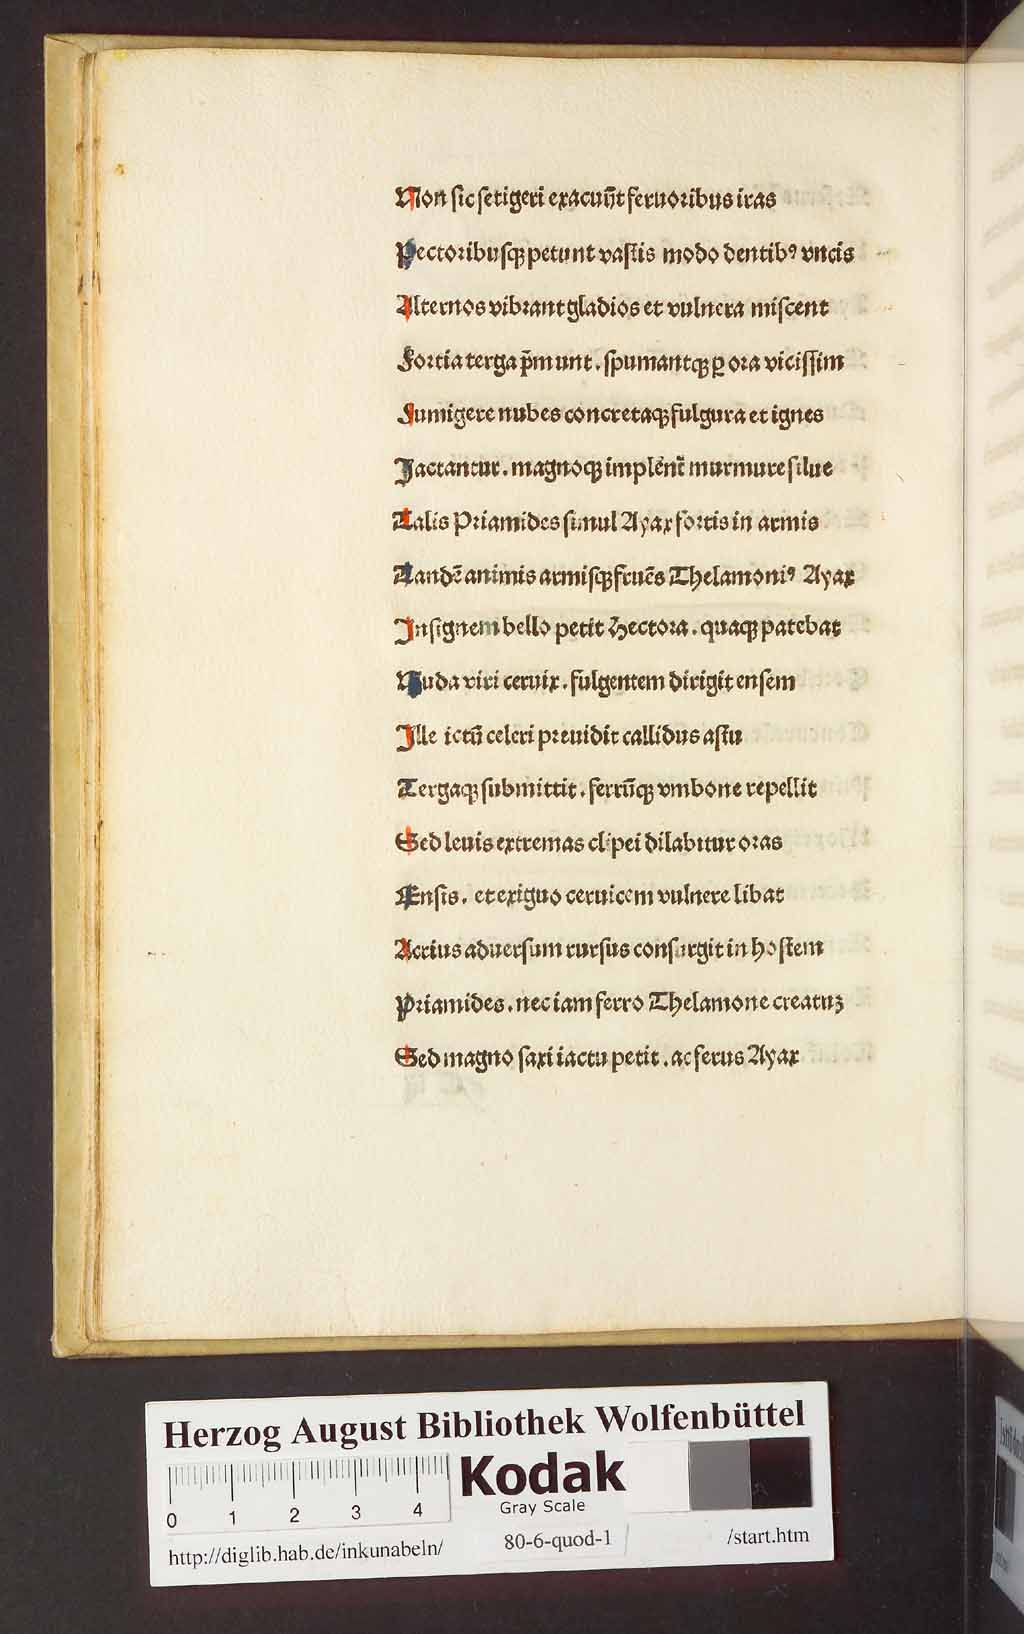 Non ſic ſetigeri exacuūt feruoribus iras
Pectoribuſqꝫ petunt vaſtis modo dentibꝰ vncis
Alternos vibrant gladios et vulnera miſcent
Fortia terga p̄munt . ſpumantqꝫ ꝑ ora viciſſim
Fumigere nubes concretaqꝫ fulgura et ignes
Jactantur . magnoqꝫ implēnt̄ murmure ſilue
Talis Priamides ſimul Ayax fortis in armis
Tandē animis armiſqꝫ fruēs Thelamoniꝰ Ayax
Inſignem bello petit Hectora . quaqꝫ patebat
Nuda viri ceruix . fulgentem dirigit enſem
Ille ictū celeri preuidit callidus aſtu
Tergaqꝫ ſubmittit . ferrūqꝫ vmbone repellit
Sed leuis extremas clipei dilabitur oras
Enſis . et exiguo ceruicem vulnere libat
Acrius aduerſum rurſus conſurgit in hoſtem
Priamides . nec iam ferro Thelamone creatuꝫ
Sed magno ſaxi iactu petit . ac ferus Ayax
Herzog August Bibliothek Wolfenbüttel
Kodak
Gray Scale
0 1 2 3 4
http://diglib.hab.de/inkunabeln/ 80-6-quod-1 /start.htm